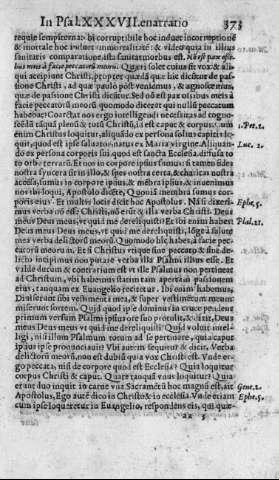 In Psal. XXXVII. enarratio 373
requie sempiterna: vbi corruptibile hoc induet incorruptionē
& mortale hoc induet immortalitatē: & videns quia in illius
sanitatis comparatione, ista sanitas morbus est. Nō est pax ossi-
bus meis à facie peccatorū meorū. Quæri solet cuius sit vox: &
ali
qui accipiunt Christi, propter quædā quæ hîc dicūtur de pas-
sione Christi ad quæ paulò pòst veniemus, & agnoscemus
quæ de passione Christi dicūtur. Sed nō est pax ossibus meis à
facie peccatorū meorū quomodo diceret qui nullū peccatum
habebat? Coarctat nos ergo intelligendi necessitas ad cogno-
scēdū tāquā plenū & totū Christū, id est, caput & corpus. Cùm
enim Christus loquitur, aliquādo ex persona solius capitis lo-
quitur, quod est ipse saluator, natus ex Maria virgine. Aliquan-
do ex persona corporis sui quod est sancta Ecclesia diffusa to-
to orbe terrarū. Et nos in corpore ipsius sumus, si tamen fides
nostra syncera sit in illo, & spes nostra certa, & charitas nostra
accēsa, sumus in corpore ipsius, & mēbra ipsius, & inuenimus
nos ibi loqui, Apostolo dicēte, Quoniā membra sumus cor-
poris eius. Et multis locis dicit hoc Apostolus. Nā si dixeri-
mus verba nō esse Christi, nō erūt & illa verba Christi. Deus
meus Deus meus, vt quid me dereliquisti? Et ibi enim habes
Deus meus Deus meus, vt quid me dereliquisti, lōgè à salute
mea verba delictorū meorū. Quomodo hîc habes, à facie pec-
catorū meorū
1.Pet.2.
Luc. 2.
Ephe.5.
Psal.21.
vt in Psalmi illius esse. Et
valde durum & contrarium est vt ille Psalmus non pertineat
ad Christum, vbi habemus tam apertam passionem
eius, tanquam ex Euangelio recitetur. Ibi enim habemus,
Diuiserunt sibi vestimenta mea, & super vestimentum meum
miserunt sortem. Quid quod ipse dominus in cruce pendens
primum versum Psalmi ipsius ore suo protulit, & dixit, Deus
meus Deus meus vt quid me dereliquisti? Quid voluit intel-
ligi, nisi illum Psalmum totum ad se pertinere, quia caput
ipsius ipse pronunciauit? Vbi autem sequitur & dicit, Verba
delictorū meorū, non est dubiū quia vox Christi est. Vnde er-
go peccata, nisi de corpore quod est Ecclesia? Quia loquitur
corpus Christi & caput. Quare tanquā vnus loquitur? Quia
erunt duo inquit in carne vna. Sacramētū hoc magnū est, ait
Apostolus, Ego autē dico in Christo & in ecclesia. Vnde etiam
cùm ipse loqueretur in Euangelio, respondens eis, qui quæ-
Gene.2.
Ephe.5.